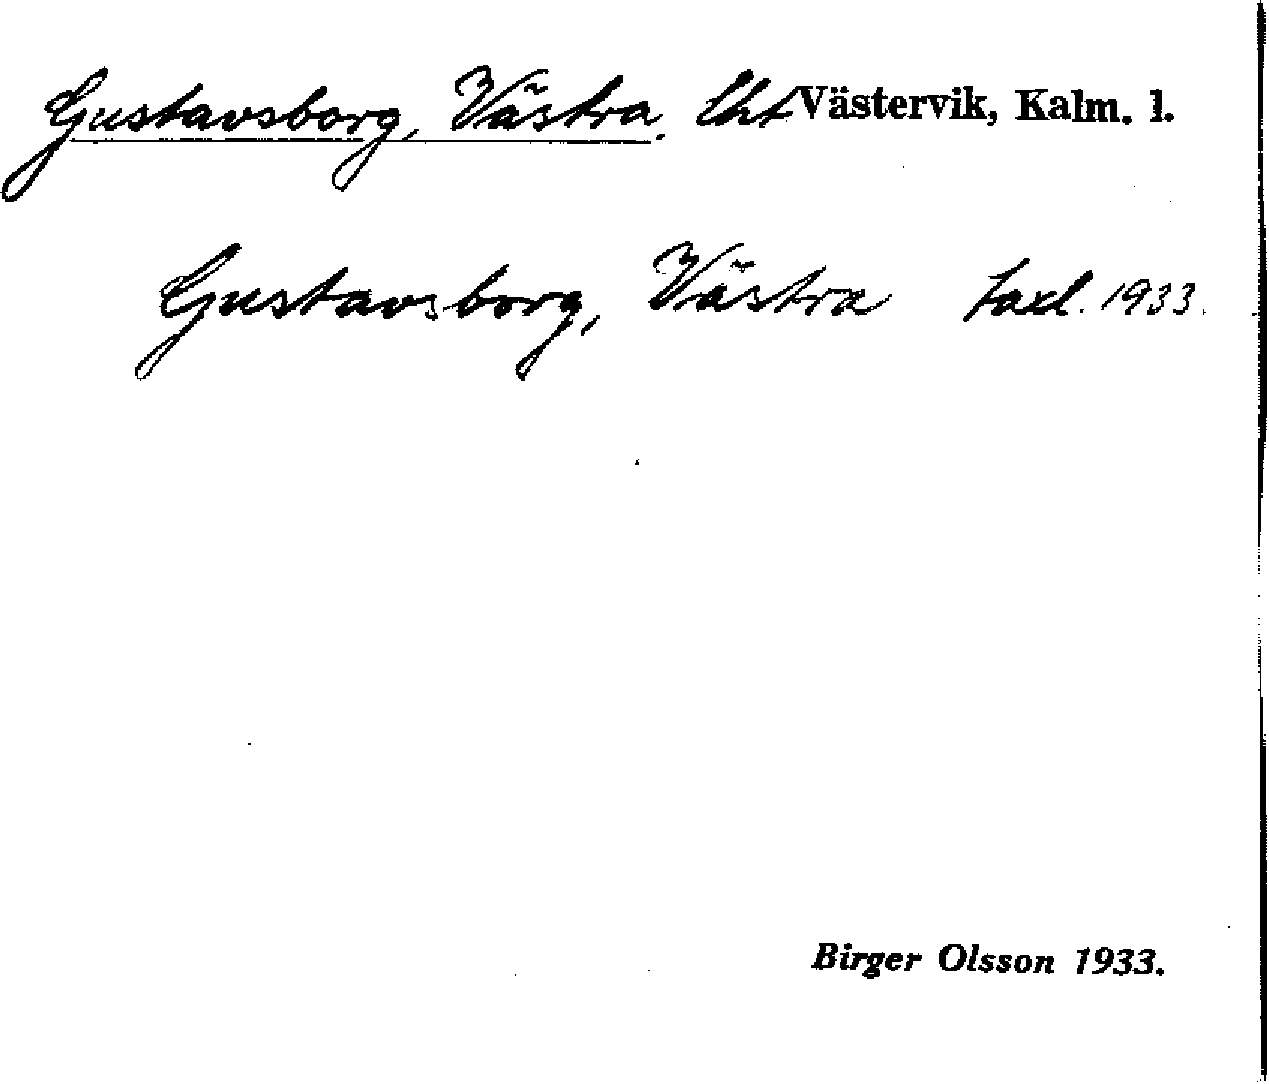 Gustavsborg, Västra. Lht Västervik, Kalm. l.
Gustavsborg, Västra taxl. 1933.
Birger Olsson 1933.